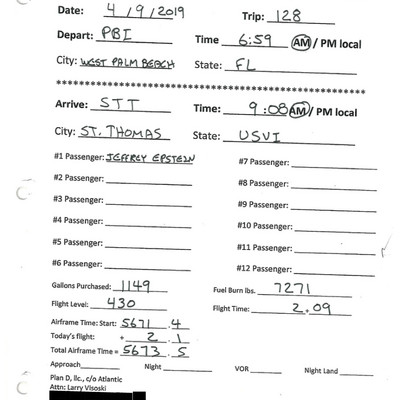 Date: 4/9/2019 Trip: 128
Depart: PBI Time 6:59 AM / PM local
City: WEST PALM BEACH State: FL
********************************************************************************
Arrive: STT Time: 9:08 AM / PM local
City: ST. THOMAS State: USVI
#1 Passenger: JEFFREY EPSTEIN #7 Passenger:
#2 Passenger: #8 Passenger:
#3 Passenger: #9 Passenger:
#4 Passenger: #10 Passenger:
#5 Passenger: #11 Passenger:
#6 Passenger: #12 Passenger:
Gallons Purchased: 1149 Fuel Burn lbs. 7271
Flight Level: 430 Flight Time: 2.09
Airframe Time: Start: 5671.4
Today's flight: + 2.1
Total Airframe Time = 5673.5
Approach Night VOR Night Land
Plan D, llc., c/o Atlantic
Attn: Larry Visoski